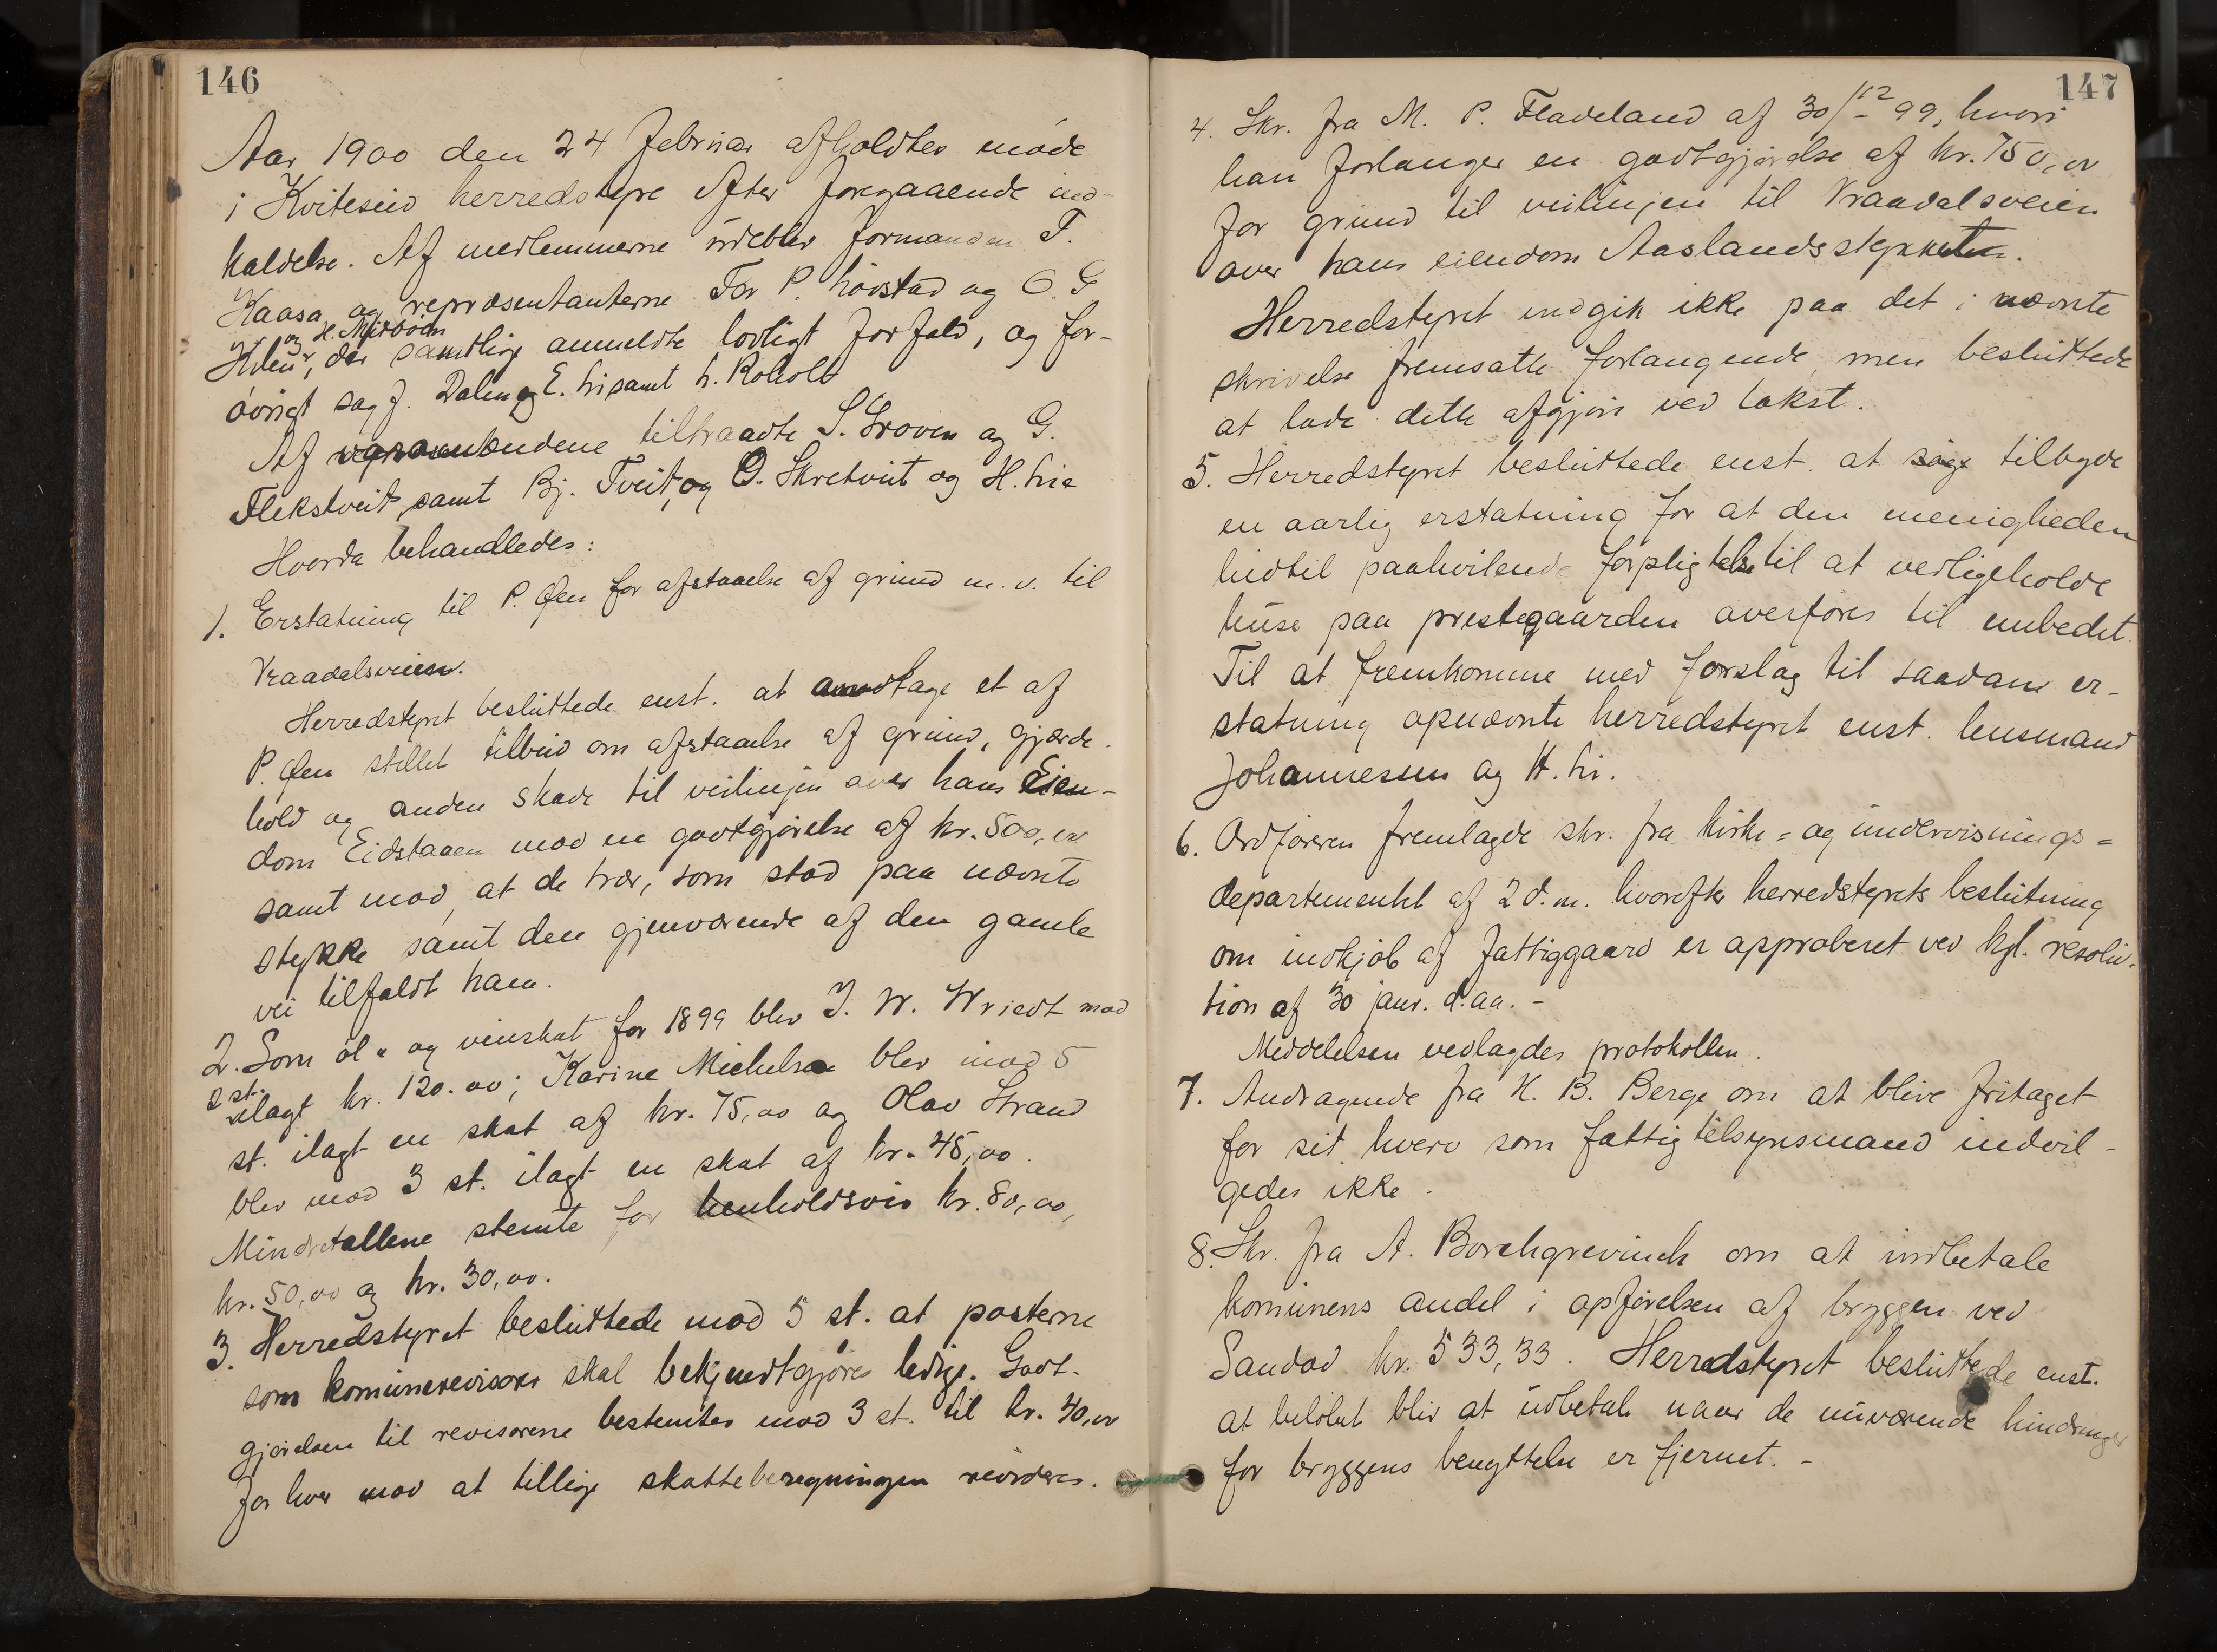 146
Aar 1900 den 24 februar afholdtes møde
i Kviteseid herredstyre efter foregaaende ind-
kaldelse. Af medlemmerne udeblev formanden T.
Kaasa og repræsentanterne Tor P. Hovstad og O. G
og H. Midbøen
Kleiv, der samtlige anmeldte lovligt forfald, og for-
øvrigt sag J. Dalen og E. Li samt L. Roholt
Af varamændene tiltraadte S. Groven og G.
Flekstveit, samt Bj. Tveit, og O. Skretveit og H. Lie
Hvorda behandledes:
1. Erstatning til P. Øen for afstaaelse af grund m. v. til
Vraadalsveien.
Herredstyret besluttede enst. at modtage et af
P. Øen stillet tilbud om afstaaelse af grund, gjærde-
hold og anden skade til veilinjen over hans Eien-
dom Eidstaaen mod en godtgjørelse af kr. 500,00
samt mod, at de trær, som stod paa nævnte
stykke samt den gjenværende af den gamle
vei tilfaldt ham.
2. Som øl- og vinskat for 1899 blev J. W. Wriedt mod
2 st. ilagt kr. 120.00; Karine Michelsen blev mod 5
st. ilagt en skat af kr. 75,00 og Olav Strand
blev mod 3 st. ilagt en skat af kr. 45,00.
Mindretallene stemte for henholdsvis kr. 80,00,
kr. 50,00 og kr. 30,00.
3. Herredstyret besluttede mod 5 st. at posterne
som komunerevisorer skal bekjendtgjøres ledige. Godt-
gjørelsen til revisorerne bestemtes mod 3 st. til kr. 40,00
for hver mod at tillige skatteberegningen revideres.
147
4. Skr. fra M. P. Fladeland af 30/12 99, hvori
han forlanger en godtgjørelse af kr. 750,00
for grund til veilinjen til Vraadalsveien
over hans eiendom Aaslandsstykket.
Herredstyret indgik ikke paa det i nævnte
skrivelse fremsatte forlangende, men besluttede
at lade dette afgjøre ved takst.
5. Herredstyret besluttede enst. at søge tilbyde
en aarlig erstatning for at den menigheden
hidtil paahvilende forpligtelse til at vedligeholde
huse paa prestegaarden overføres til embedet.
Til at fremkomme med forslag til saadan er-
statning opnævnte herredstyret enst. lensmand
Johannessen og H. Li.
6. Ordføreren fremlagde skr. fra kirke- og undervisnings-
departementet af 2 d. m. hvorefter herredstyrets beslutning
om indkjøb af fattiggaard er approberet ved kgl. resolu-
tion af 30 janr. d. aa. -
Meddelelsen vedlagdes protokollen.
7. Andragende fra K. B. Berge om at blive fritaget
for sit hverv som fattigtilsynsmand indvil-
gedes ikke.
8. Skr. fra A. Borchgrevinck om at indbetale
komunens andel i opførelsen af bryggen ved
Sandød kr. 533,33. Herredstyret besluttede enst.
at beløbet blir at udbetale naar de nuværende hindringer
for bryggens benyttelse er fjernet. -